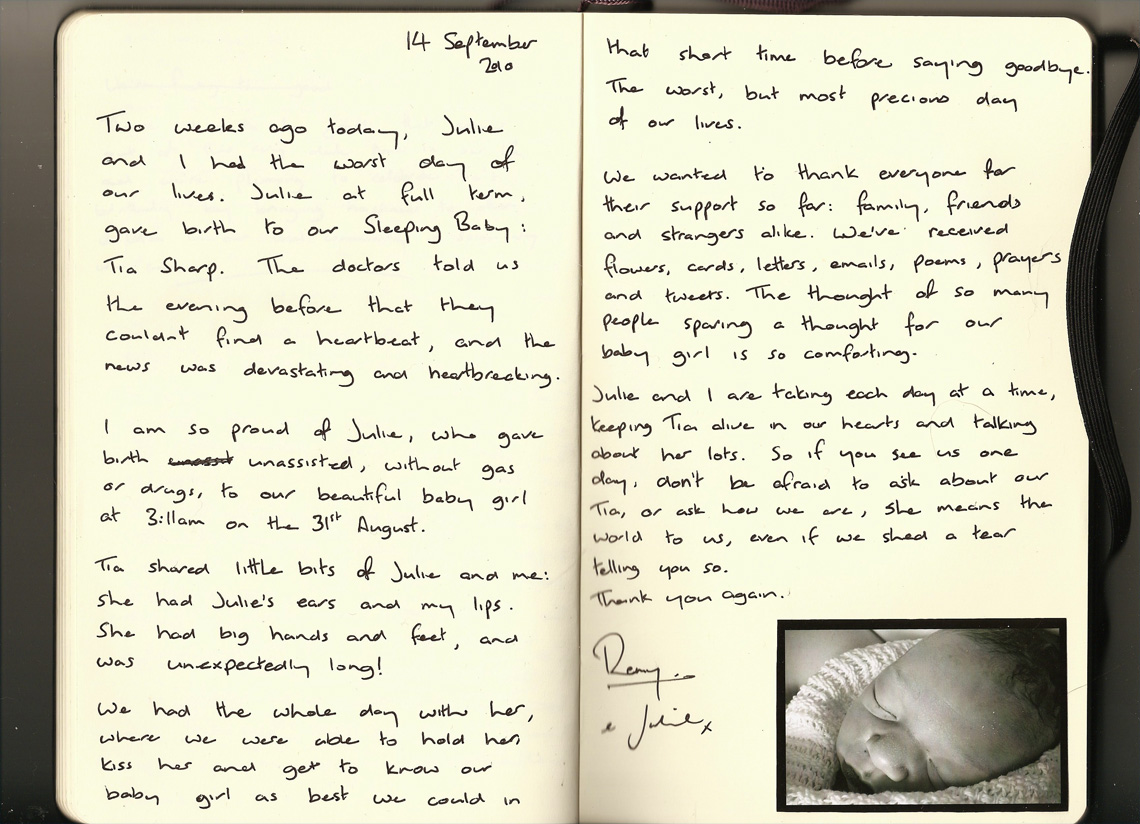 14 September
2010
Two weeks ago today, Julie
and I had the worst day of
our lives. Julie at full term,
gave birth to our Sleeping Baby:
Tia Sharp. The doctors told us
the evening before that they
couldnt find a heartbeat, and the
news was devastating and heartbreaking.
I am so proud of Julie, who gave
birth unassisted, without gas
or drugs, to our beautiful baby girl
at 3:11am on the 31st August.
Tia shared little bits of Julie and me:
she had Julie's ears and my lips.
She had big hands and feet, and
was unexpectedly long!
We had the whole day with her,
where we were able to hold her,
kiss her and get to know our
baby girl as best we could in
that short time before saying goodbye.
The worst, but most precious day
of our lives.
We wanted to thank everyone for
their support so far: family, friends
and strangers alike. We've received
flowers, cards, letters, emails, poems, prayers
and tweets. The thought of so many
people sparing a thought for our
baby girl is so comforting.
Julie and I are taking each day at a time,
keeping Tia alive in our hearts and talking
about her lots. So if you see us one
day, don't be afraid to ask about our
Tia, or ask how we are, she means the
world to us, even if we shed a tear
telling you so.
Thank you again.
Remy
& Julie x